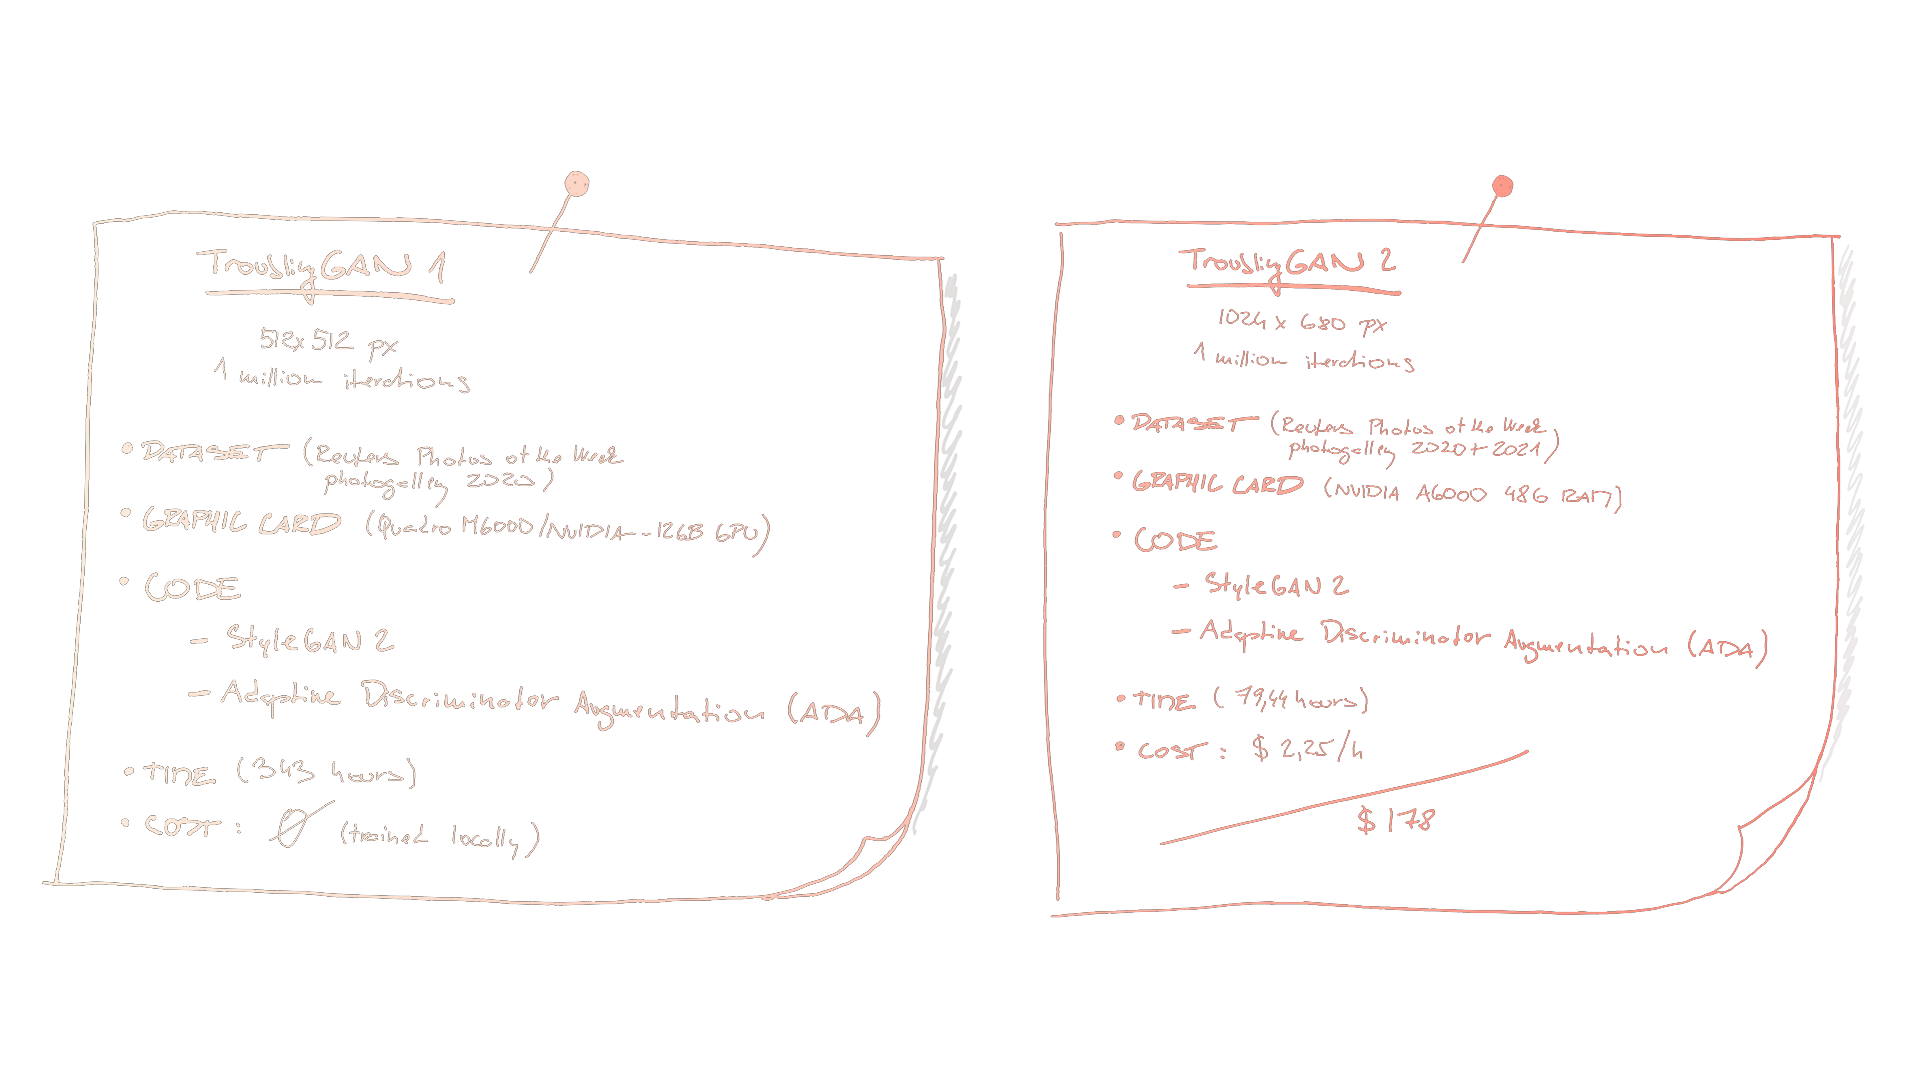 TroublingGAN 1
512x512 px
1 million iterations
• DATASET (Reuters Photos of the Week
photogallery 2020)
• GRAPHIC CARD (Quadro M6000/NVIDIA--12GB GPU)
• CODE
– StyleGAN 2
– Adaptive Discriminator Augmentation (ADA)
• TIME (343 hours)
• COST : Ø (trained locally)
TroublingGAN 2
1024 x 680 px
1 million iterations
• DATASET (Reuters Photos of the Week
photogallery 2020+2021)
• GRAPHIC CARD (NVIDIA A6000 48G RAM)
• CODE
– StyleGAN 2
– Adaptive Discriminator Augmentation (ADA)
• TIME (79,44 hours)
• COST : $ 2,25/h
$ 178